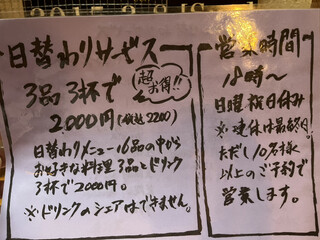 日替わりサービス
3品3杯で
2,000円(税込2200)
超お得!!
日替わりメニュー16品の中から
お好きな料理3品とドリンク
3杯で2000円。
※ドリンクのシェアはできません。
営業時間~
18時~
日曜祝日休み
※連休は最終日。
ただし10名様
以上のご予約で
営業します。